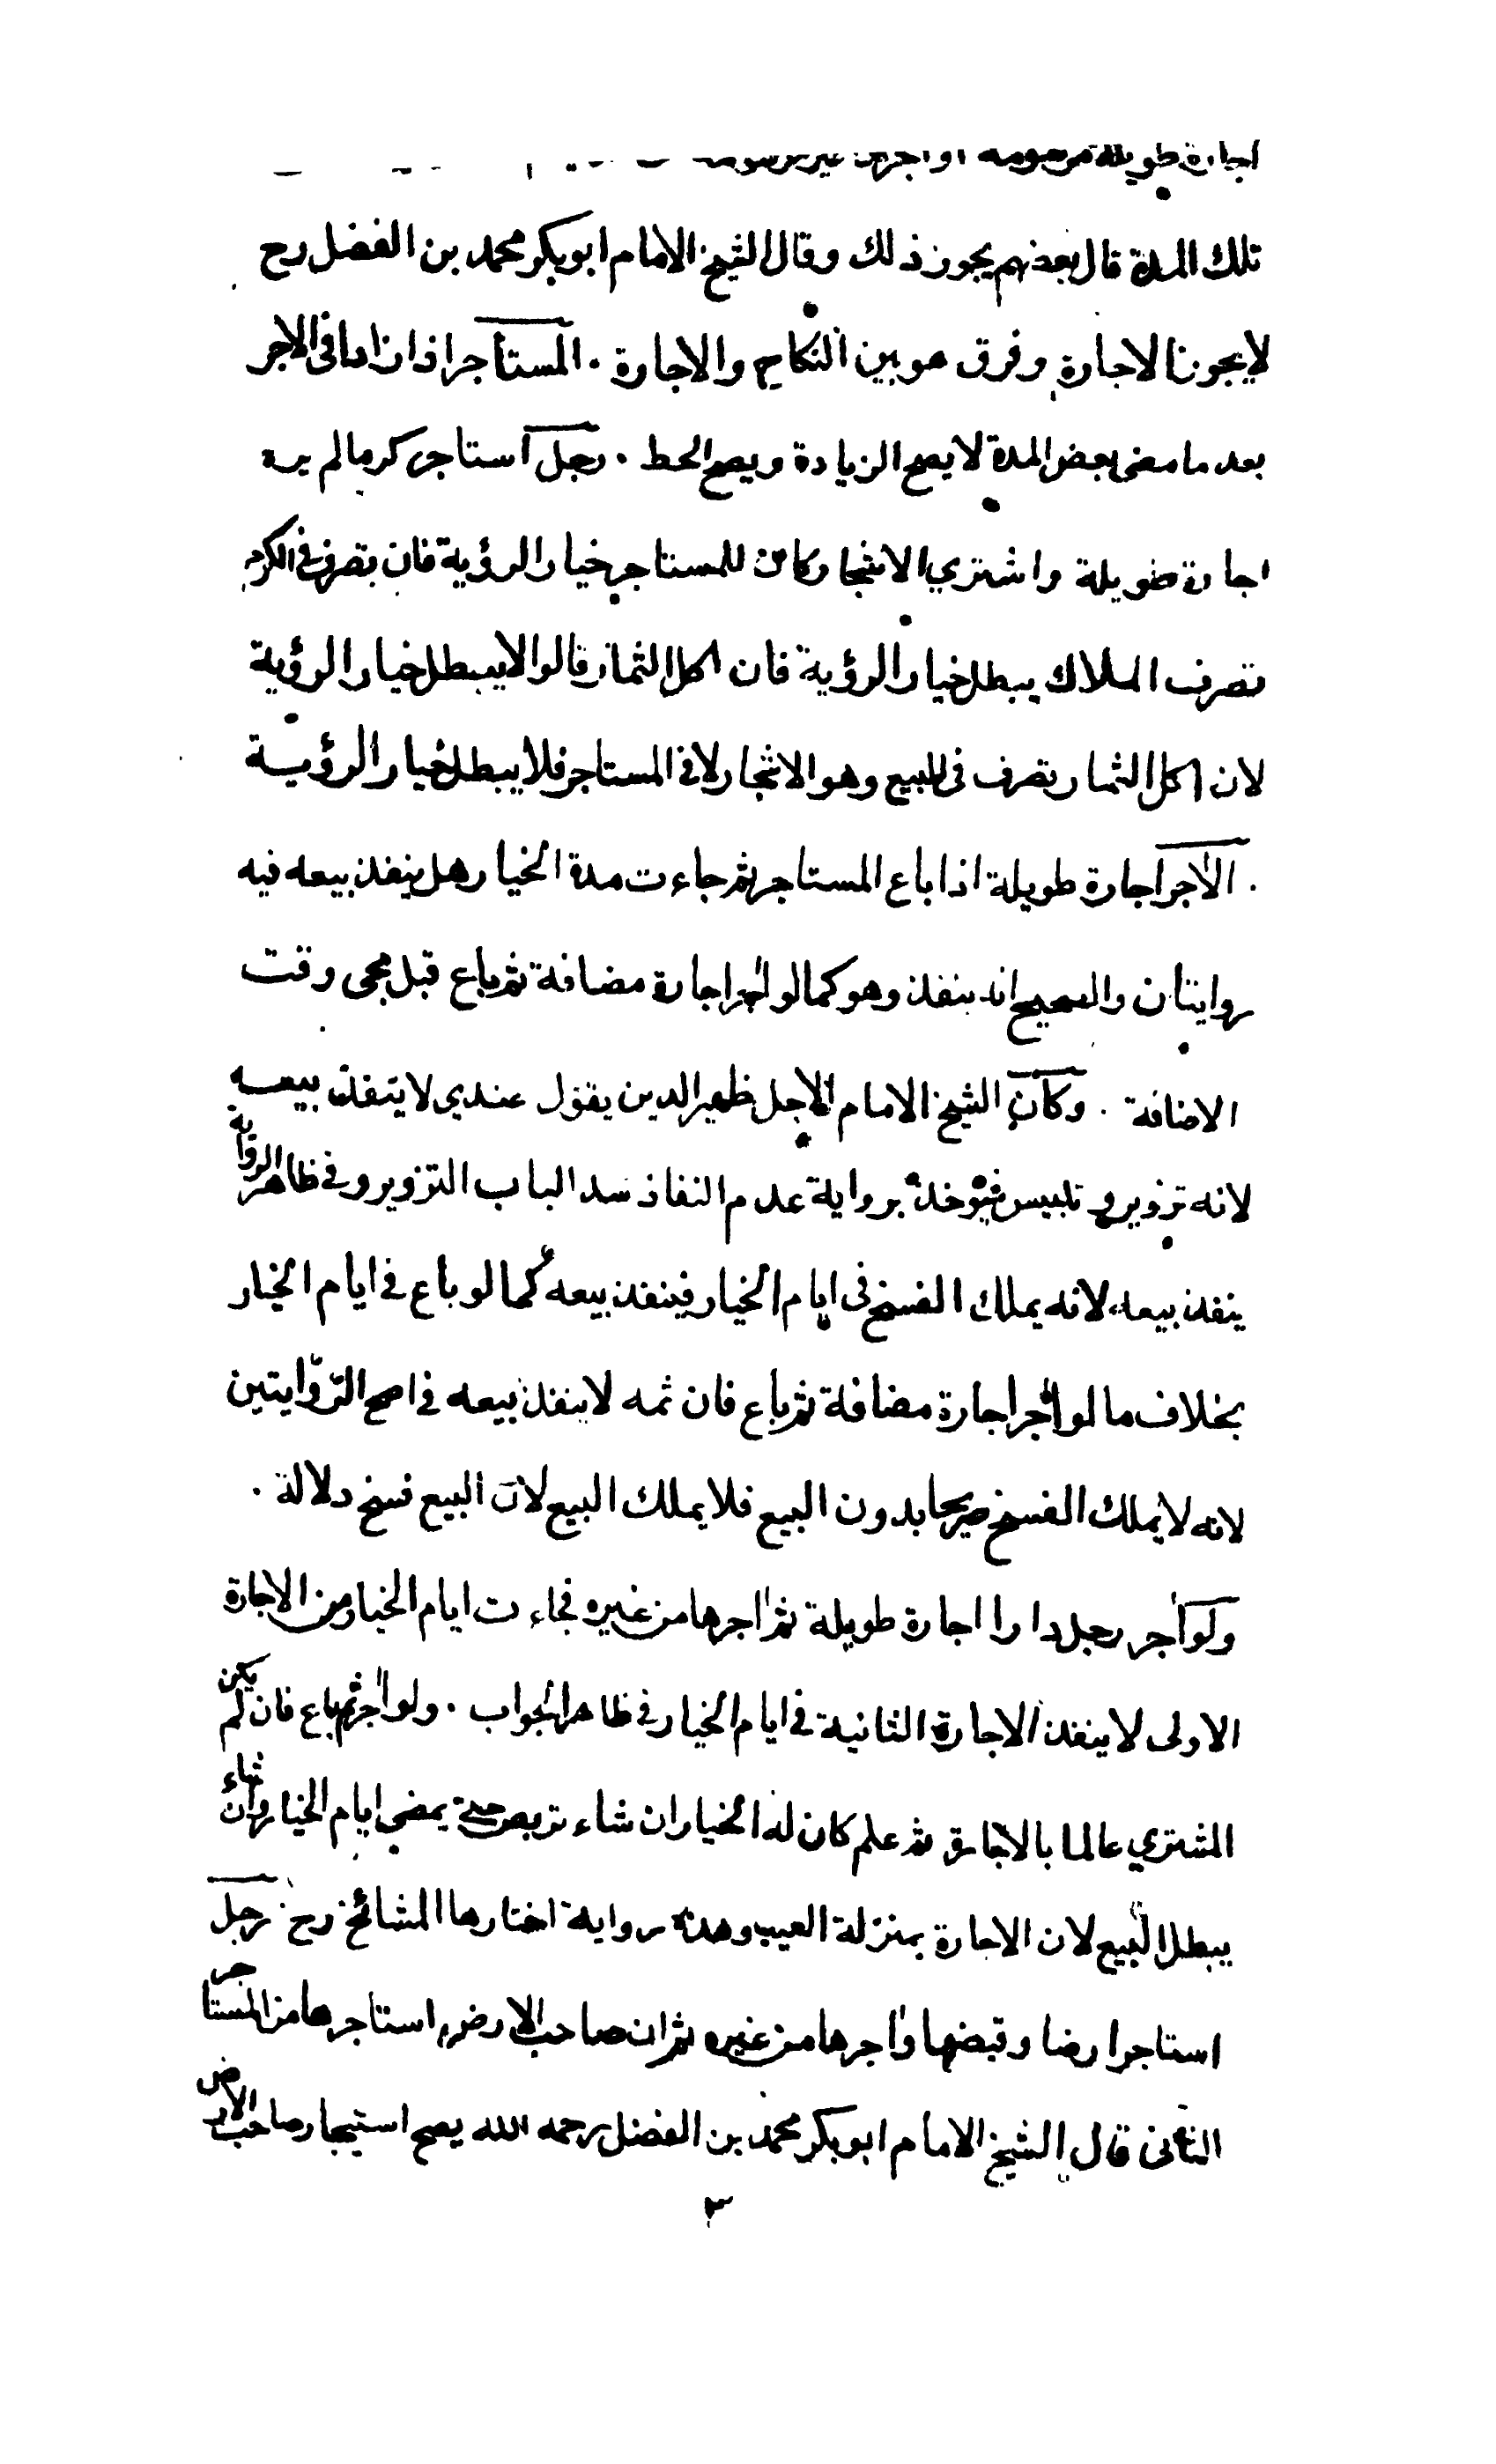 اجارة طويلة مرسومة او اجرهن غير مرسومة
تلك المدة قال بعضهم يجوز ذلك وقال الشيخ الامام ابوبكر محمد بن الفضل رح
لا يجوز الاجارة وفرق هو بين النكاح والاجارة ٠ المستاجر اذا زاد في الاجر
بعد ما مضى بعض المدة لا يصح الزيادة ويصح الحط ٠ رجل استاجر كرما لم يره
اجارة طويلة واشتري الاشجار كان للمستاجر خيار الرؤية فان تصرف في الكرم
تصرف الملاك يبطل خيار الرؤية فان اكل الثمار قالوا لا يبطل خيار الرؤية
لان اكل الثمار تصرف في المبيع وهو الاشجار لا في المستاجر فلا يبطل خيار الرؤية
٠ الآجر اجارة طويلة اذا باع المستاجر ثم جاءت مدة الخيار هل ينفذ بيعه فيه
روايتان والصحيح انه ينفذ وهو كما لو اجر اجارة مضافة ثم باع قبل مجى وقت
الاضافة ٠ وكان الشيخ الامام الاجل ظهير الدين يقول عندي لا ينفذ بيعه
لانه تزوير و تلبيس فيؤخذ برواية عدم النفاذ سدا لباب التزوير وفي ظاهر الرواية
ينفذ بيعه لانه يملك الفسخ في ايام الخيار فينفذ بيعه كما لو باع في ايام الخيار
بخلاف ما لو اجر اجارة مضافة ثم باع فان ثمه لا ينفذ بيعه في اصح الروايتين
لانه لا يملك الفسخ صريحا بدون البيع فلا يملك البيع لان البيع فسخ دلالة ٠
ولو آجر رجل دارا اجارة طويلة ثم اجرها من غيره فجاءت ايام الخيار من الاجارة
الاولى لا ينفذ الاجارة الثانية في ايام الخيار في ظاهر الجواب ٠ ولو اجر ثم باع فان لم يكن
المشتري عالما بالاجارة ثم علم كان له الخيار ان شاء تربص حتى يمضي ايام الخيار وان شاء
يبطل البيع لان الاجارة بمنزلة العيب وهذه رواية اختارها المشائخ رح ٠ رجل
استاجر ارضا وقبضها واجرها من غيره ثم ان صاحب الارض استاجرها من المستاجر
الثاني قال الشيخ الامام ابوبكر محمد بن الفضل رحمه الله يصح استيجار صاحب الارض
٣